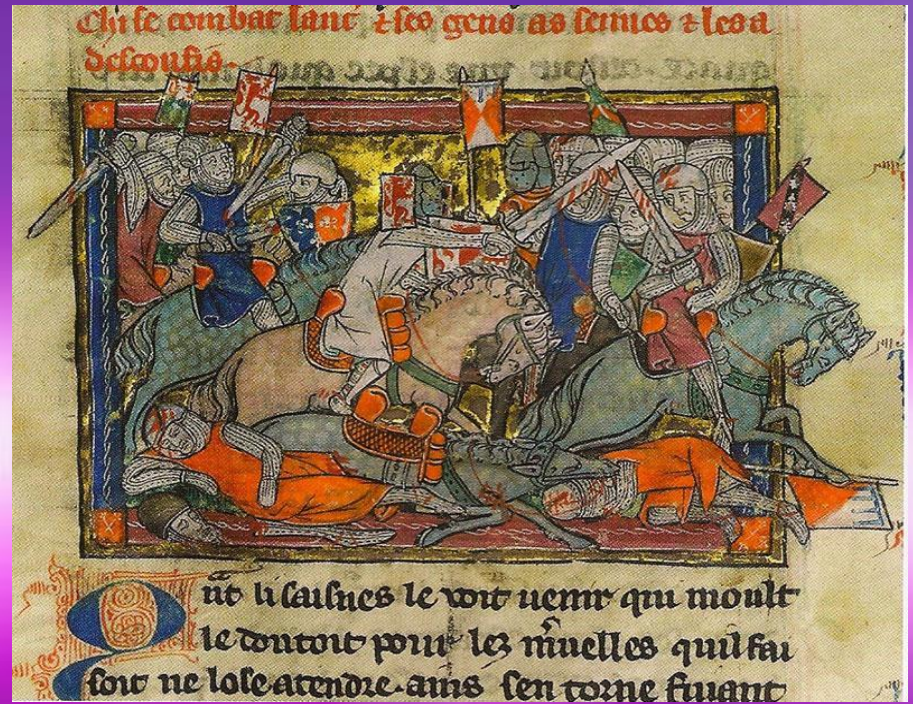 Chi se combat lanc & ses gens as sesnes & les a
desconfis.
uāt li saisnes le voit uenir qui moult
le doutoit pour les mͬuelles quil fai
soit ne lose atendre. ains sen torne fuiant